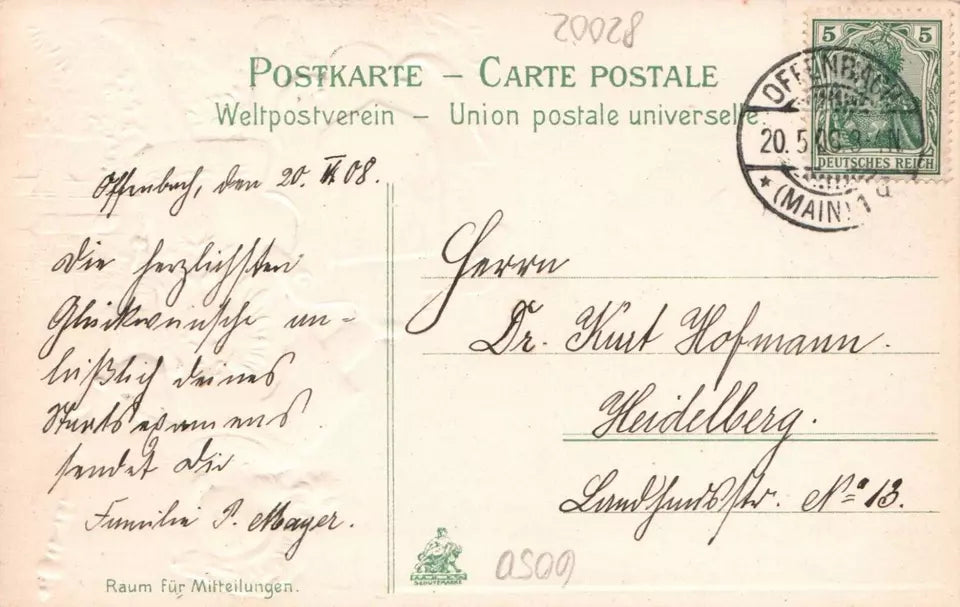 20028
POSTKARTE – CARTE POSTALE
Weltpostverein – Union postale universelle.
5 5
DEUTSCHES REICH
OFFENBACH
20. 5
(MAIN) 1
Offenbach, den 20. V. 08.
Die herzlichsten
Glückwünsche an-
läßlich deines
Staatsexamens
sendet Dir
Familie P. Mayer.
Herrn
Dr. Kurt Hofmann.
Heidelberg.
Landhausstr. No 13.
Raum für Mitteilungen.
SCHUTZMARKE
0509